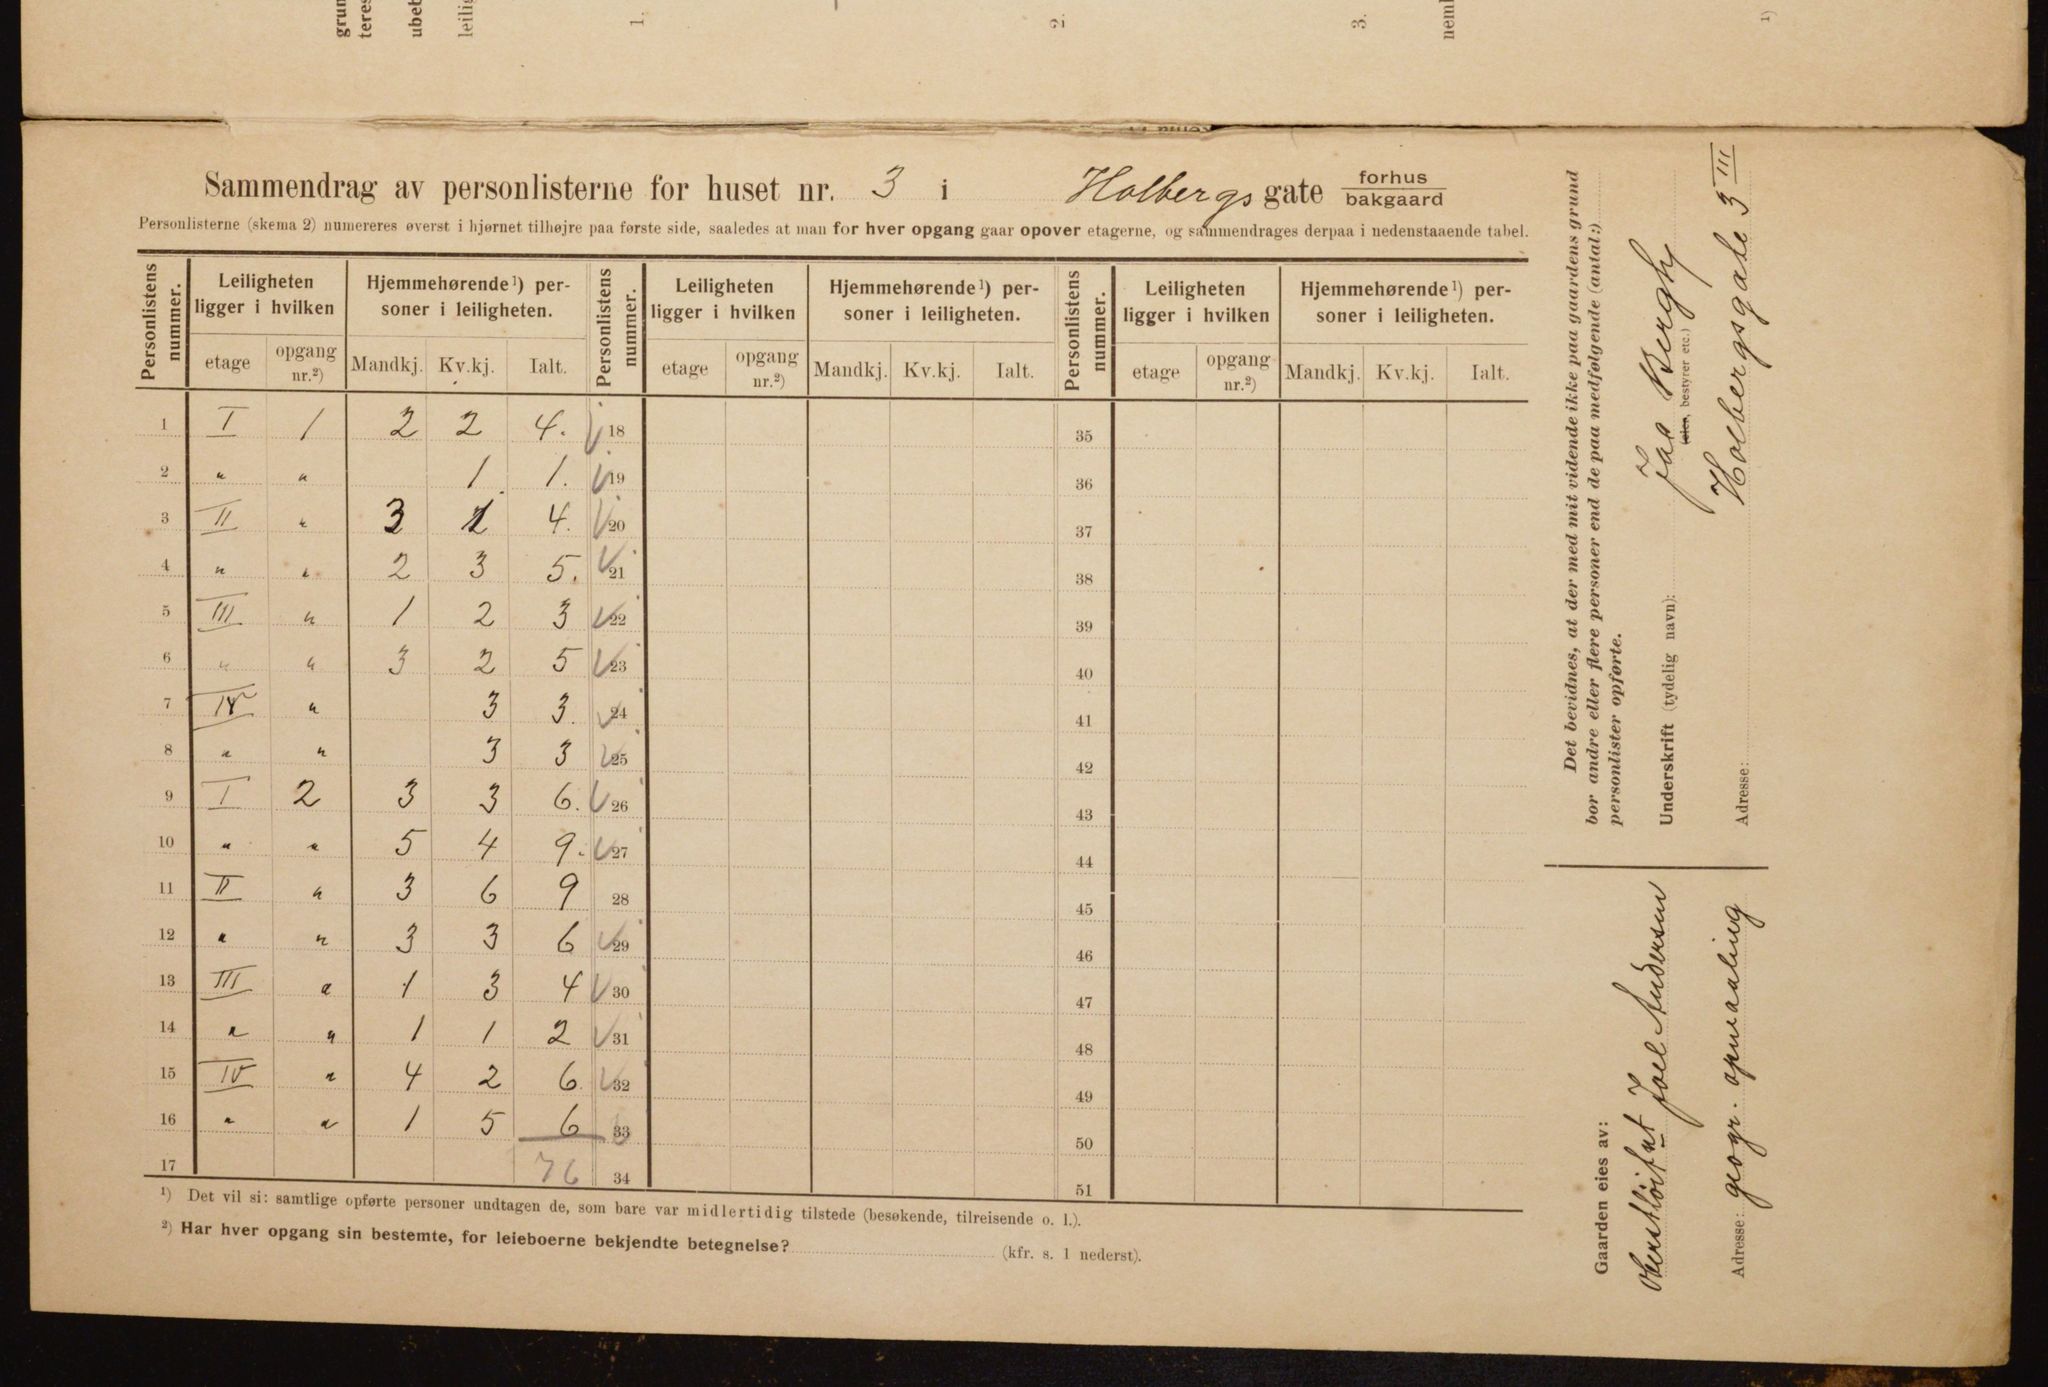 grun
teres
ubeb
leilig
1.
2.
3.
neml
1)
Sammendrag av personlisterne for huset nr. 3 i Holbergs gate forhus
bakgaard
Personlisterne (skema 2) numereres øverst i hjørnet tilhøjre paa første side, saaledes at man for hver opgang gaar opover etagerne, og sammendrages derpaa i nedenstaaende tabel.
Personlistens nummer. Leiligheten ligger i hvilken Hjemmehørende¹) personer i leiligheten. Personlistens nummer. Leiligheten ligger i hvilken Hjemmehørende¹) personer i leiligheten. Personlistens nummer. Leiligheten ligger i hvilken Hjemmehørende¹) personer i leiligheten.
etage opgang nr.²) Mandkj. Kv.kj. Ialt. etage opgang nr.²) Mandkj. Kv.kj. Ialt. etage opgang nr.²) Mandkj. Kv.kj. Ialt.
1 I 1 2 2 4. 18 35
2 " " 1 1. 19 36
3 II " 3 1 4. 20 37
4 " " 2 3 5. 21 38
5 III " 1 2 3 22 39
6 " " 3 2 5 23 40
7 IV " 3 3. 24 41
8 " " 3 3 25 42
9 I 2 3 3 6. 26 43
10 " " 5 4 9. 27 44
11 II " 3 6 9 28 45
12 " " 3 3 6 29 46
13 III " 1 3 4 30 47
14 " " 1 1 2 31 48
15 IV " 4 2 6. 32 49
16 " " 1 5 6 33 50
17 76 34 51
¹) Det vil si: samtlige opførte personer undtagen de, som bare var midlertidig tilstede (besøkende, tilreisende o. l.).
²) Har hver opgang sin bestemte, for leieboerne bekjendte betegnelse? (kfr. s. 1 nederst).
Det bevidnes, at der med mit vidende ikke paa gaardens grund
bor andre eller flere personer end de paa medfølgende (antal:)
personlister opførte.
Underskrift (tydelig navn): Jac Bergh
(eier, bestyrer etc.)
Adresse: Holbergsgate 3 III
Gaarden eies av:
Oberstløitnt Joel Andersen
Adresse: geogr. opmaaling